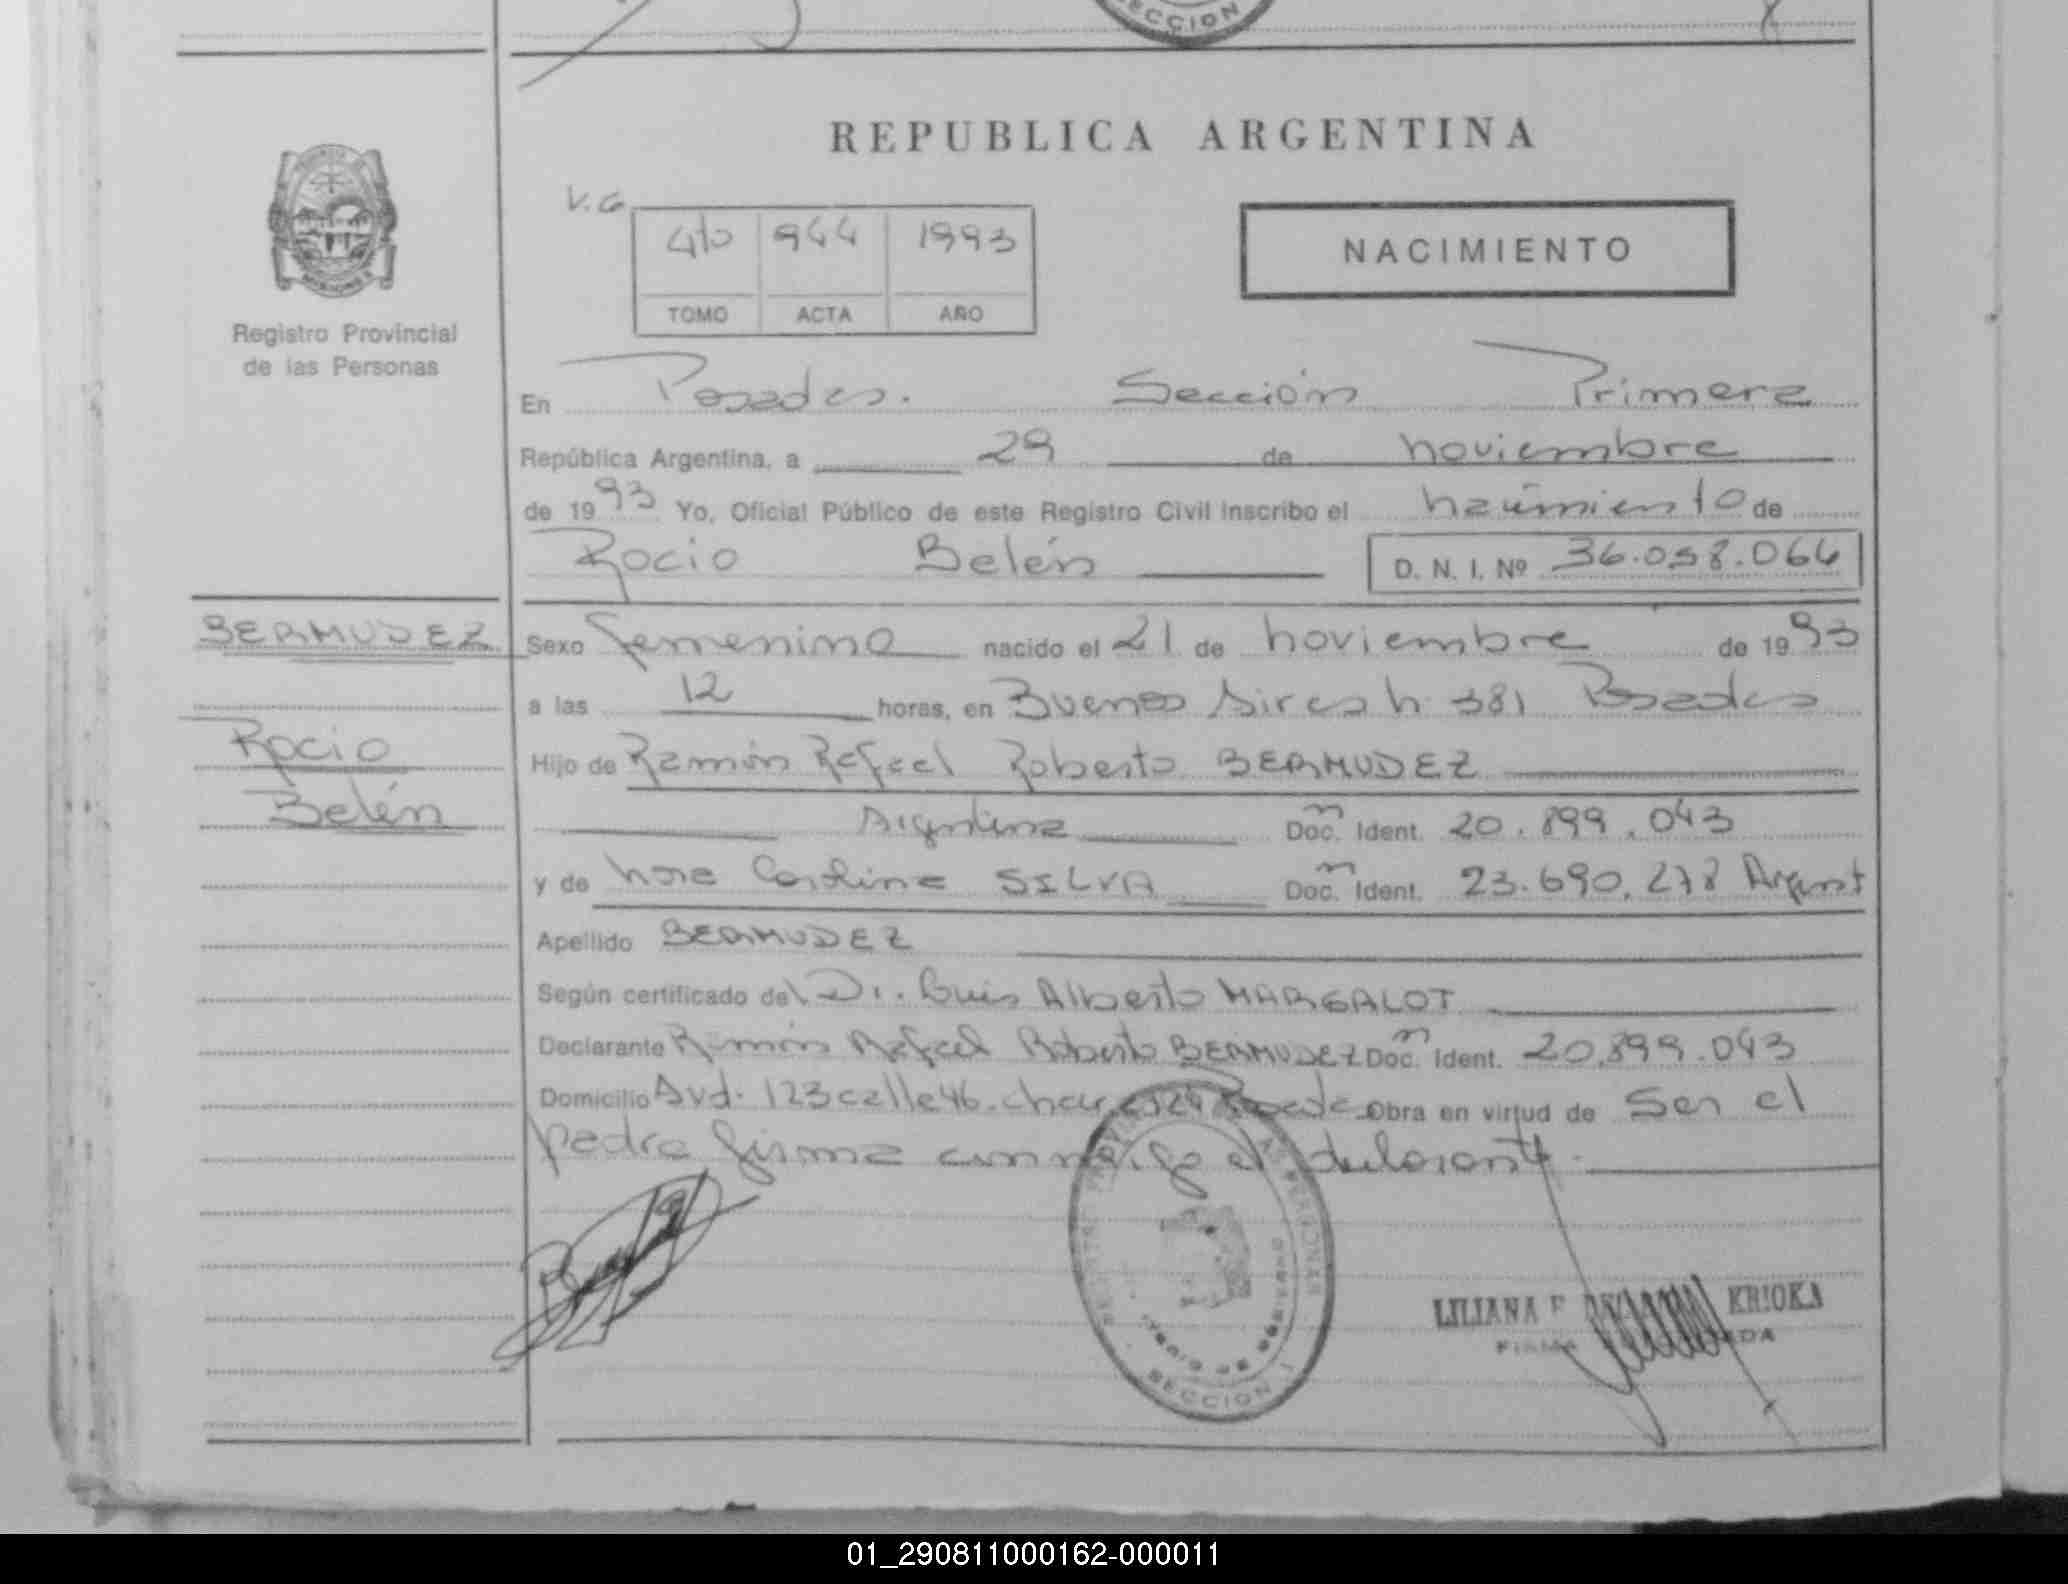 SECCION
REPUBLICA ARGENTINA
V.G
4to 944 1993
TOMO ACTA AÑO
NACIMIENTO
Registro Provincial
de las Personas
En Posadas. Sección Primera
República Argentina, a 29 de noviembre
de 1993 Yo, Oficial Público de este Registro Civil inscribo el nacimiento de
Rocio Belén D. N. I. Nº 36.058.064
BERMUDEZ
Rocio
Belén
Sexo femenino nacido el 21 de noviembre de 1993
a las 12 horas, en Buenos Aires n 381 Posadas
Hijo de Ramón Rafael Roberto BERMUDEZ
Argentina Doc. Ident. 20.899.043
y de Nora Carolina SILVA Doc. Ident. 23.690.278 Argent
Apellido BERMUDEZ
Según certificado del Dr. Luis Alberto MARGALOT
Declarante Ramón Rafael Roberto BERMUDEZ Doc. Ident. 20.899.043
Domicilio Avd. 123 calle 46. Obra en virtud de ser el
padre firma conmigo el declarante.
SECCION I
LILIANA F KRIOKA
01_290811000162-000011